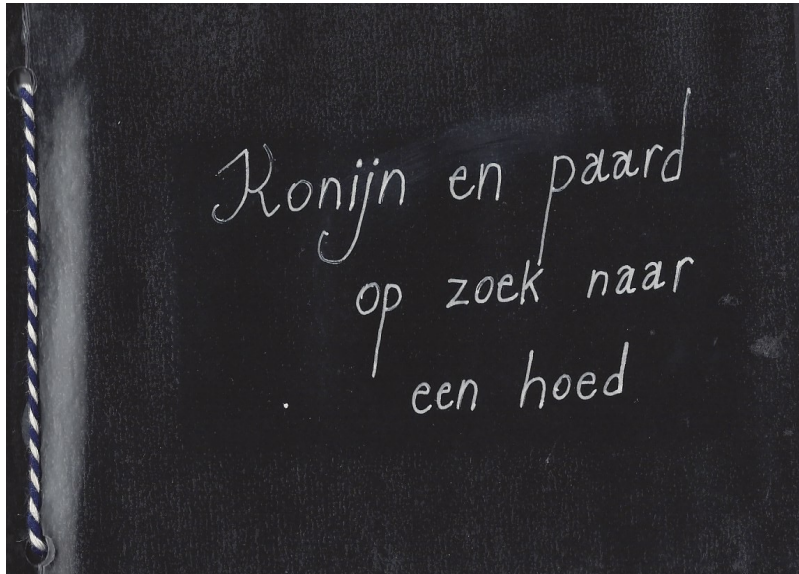 Konijn en paard
op zoek naar
een hoed